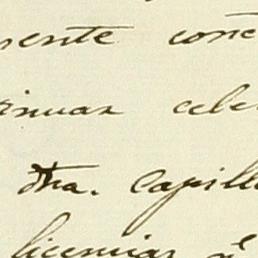 sente conc
inuar cele
dha. Capill
licencias é